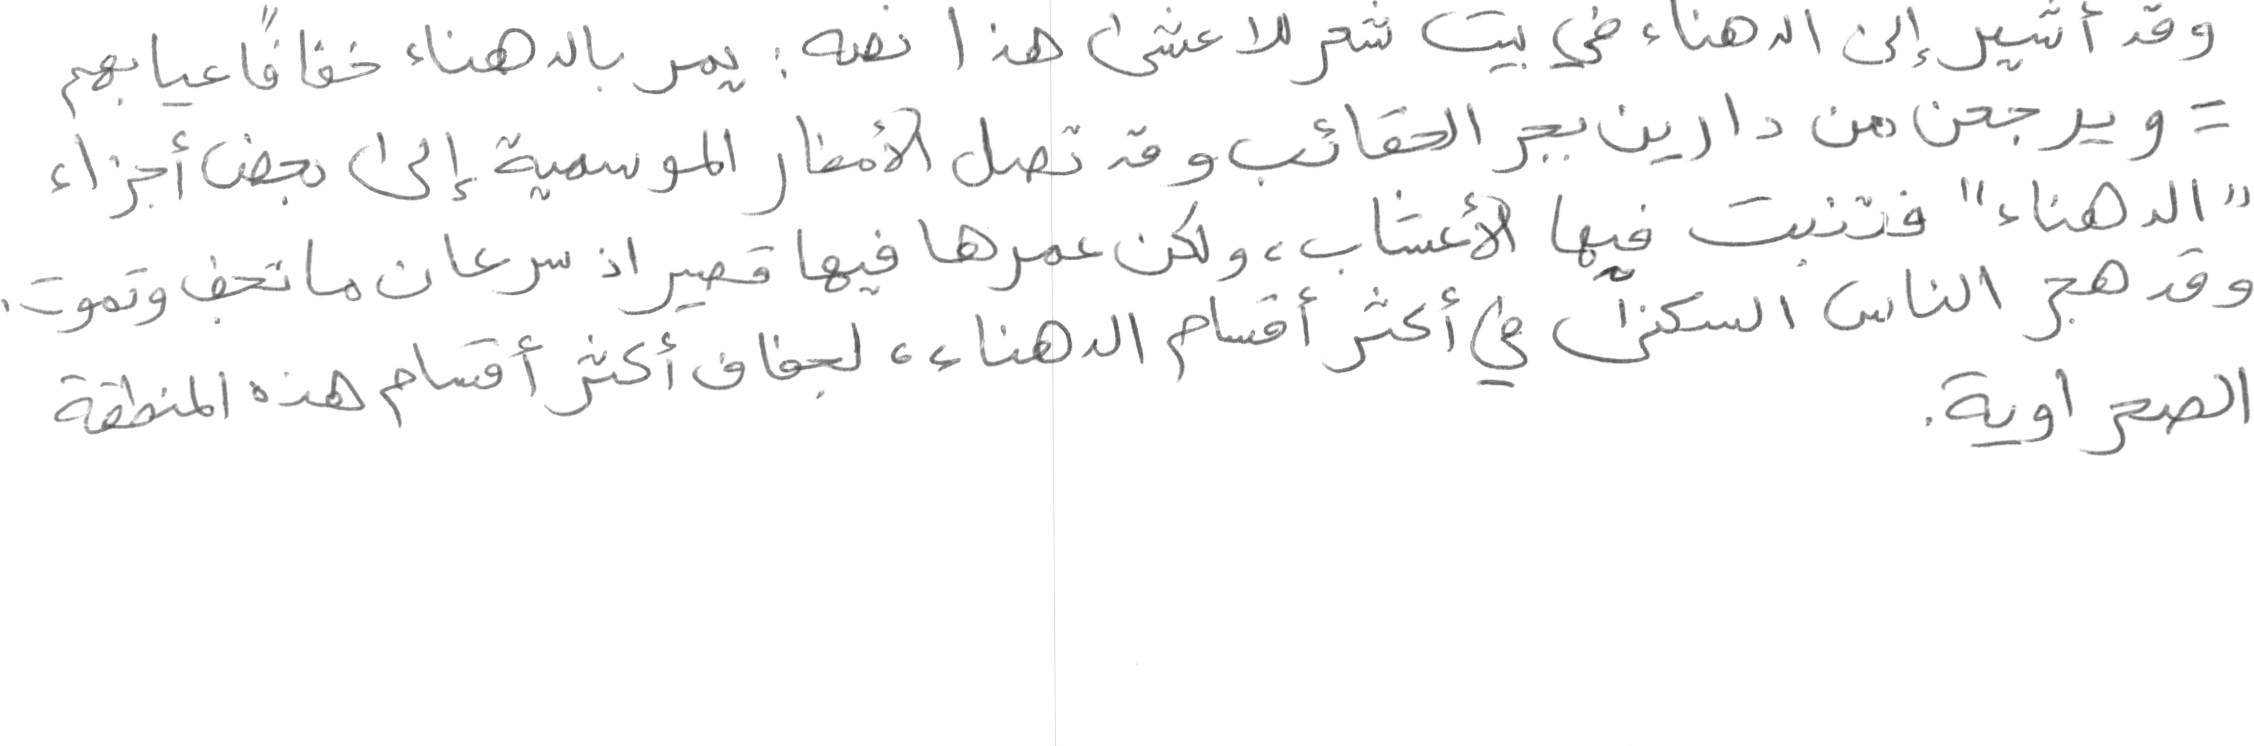 وقد أشير إلى الدهناء في بيت شعر للاعشى هذا نصه: يمر بالدهناء خفافًا عيابهم
= ويرجعن من دارين بجر الحقائب وقد تصل الأمطار الموسمية إلى بعض أجزاء
"الدهناء" فتنبت فيها الأعشاب، ولكن عمرها فيها قصير اذ سرعان ما تجف وتموت.
وقد هجر الناس السكنى في أكثر أقسام الدهناء، لجفاف أكثر أقسام هذه المنطقة
الصحراوية.